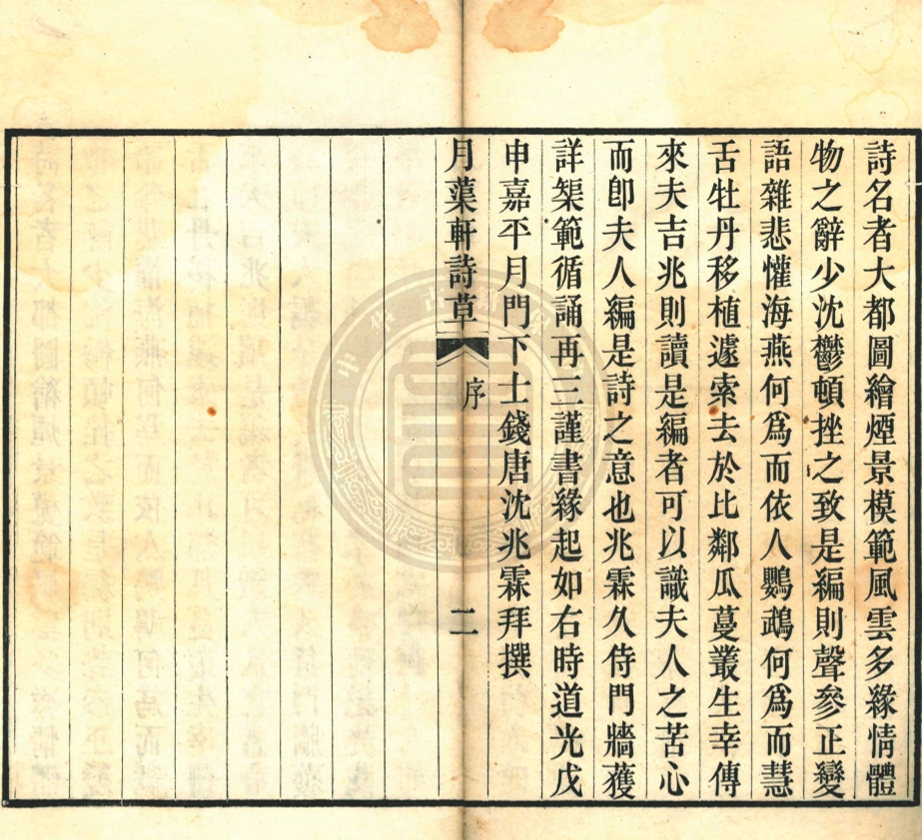 詩名者大都圖繪煙景模範風雲多緣情體
物之辭少沈鬱頓挫之致是編則聲參正變
語雜悲懽海燕何爲而依人鸚鵡何爲而慧
舌牡丹移植遽索去於比鄰瓜蔓叢生幸傳
來夫吉兆則讀是編者可以識夫人之苦心
而卽夫人編是詩之意也兆霖久侍門牆獲
詳榘範循誦再三謹書緣起如右時道光戊
申嘉平月門下士錢唐沈兆霖拜撰
月蕖軒詩草 序 二